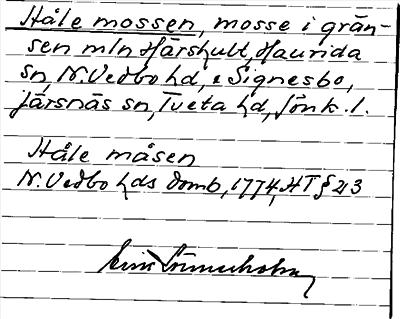 Håle mossen, mosse i grän-
sen mln Härshult, Haurida
sn, N. Vedbo hd, o Signesbo,
Järsnäs sn, Tveta hd, Jönk. l.
Håle måsen
N. Vedbo hds domb, 1774, HT § 213
Erik